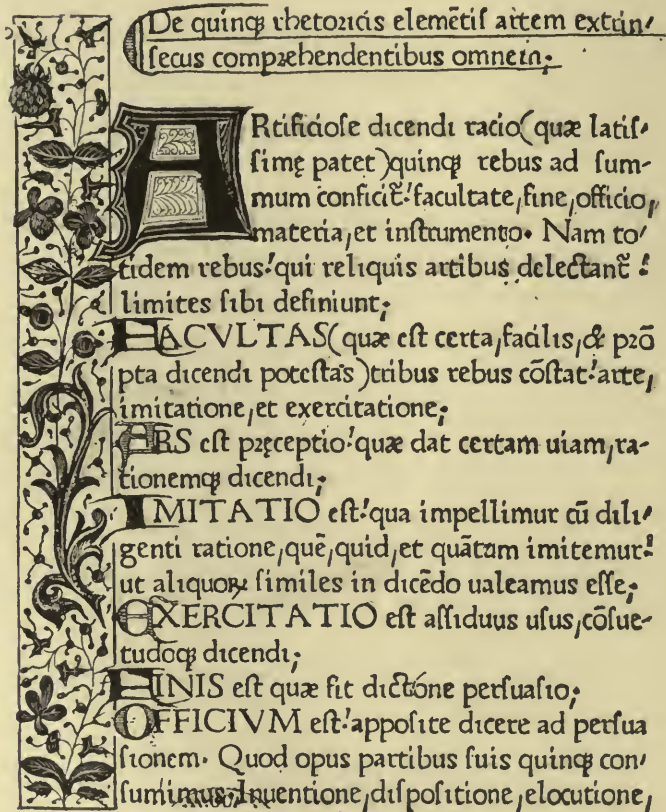 De quinqꝫ rhetoꝛicis elemētiſ artem extrin⸗
ſecus compꝛehendentibus omnem;
ARtificioſe dicendi racio(quæ latiſ⸗
ſimę patet)quinqꝫ rebus ad ſum-
mum conficit̃:facultate,fine,officio,
materia,et inſtrumento. Nam to⸗
tidem rebus:qui reliquis artibus delectant̃:
limites ſibi definiunt;
FACVLTAS(quæ eſt certa,facilis,& pꝛō
pta dicendi poteſtas)tribus rebus cōſtat:arte,
imitatione,et exercitatione;
ARS eſt pꝛęceptio:quæ dat certam uiam,ra-
tionemqꝫ dicendi;
IMITATIO eſt:qua impellimur cū dili⸗
genti ratione,quē,quid,et quātum imitemur:
ut aliquoꝝ ſimiles in dicēdo ualeamus eſſe;
EXERCITATIO eſt aſſiduus uſus,cōſue-
tudoqꝫ dicendi;
FINIS eſt quæ fit dictóne perſuaſio;
OFFICIVM eſt:appoſite dicere ad perſua
ſionem. Quod opus partibus ſuis quinqꝫ con⸗
ſumimus:Inuentione,diſpoſitione,elocutione,